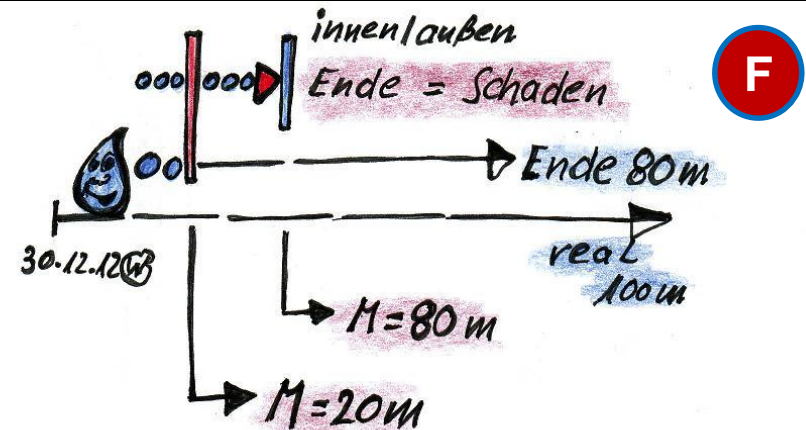 innen/außen
F
Ende = Schaden
Ende 80m
30.12.12
real
100m
M=80m
M=20m